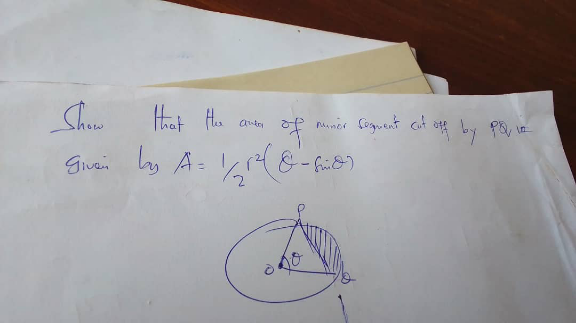 Show that the area of minor segment cut off by PQ is
given by A = 1/2 r²(θ - sinθ)
P
O θ
Q